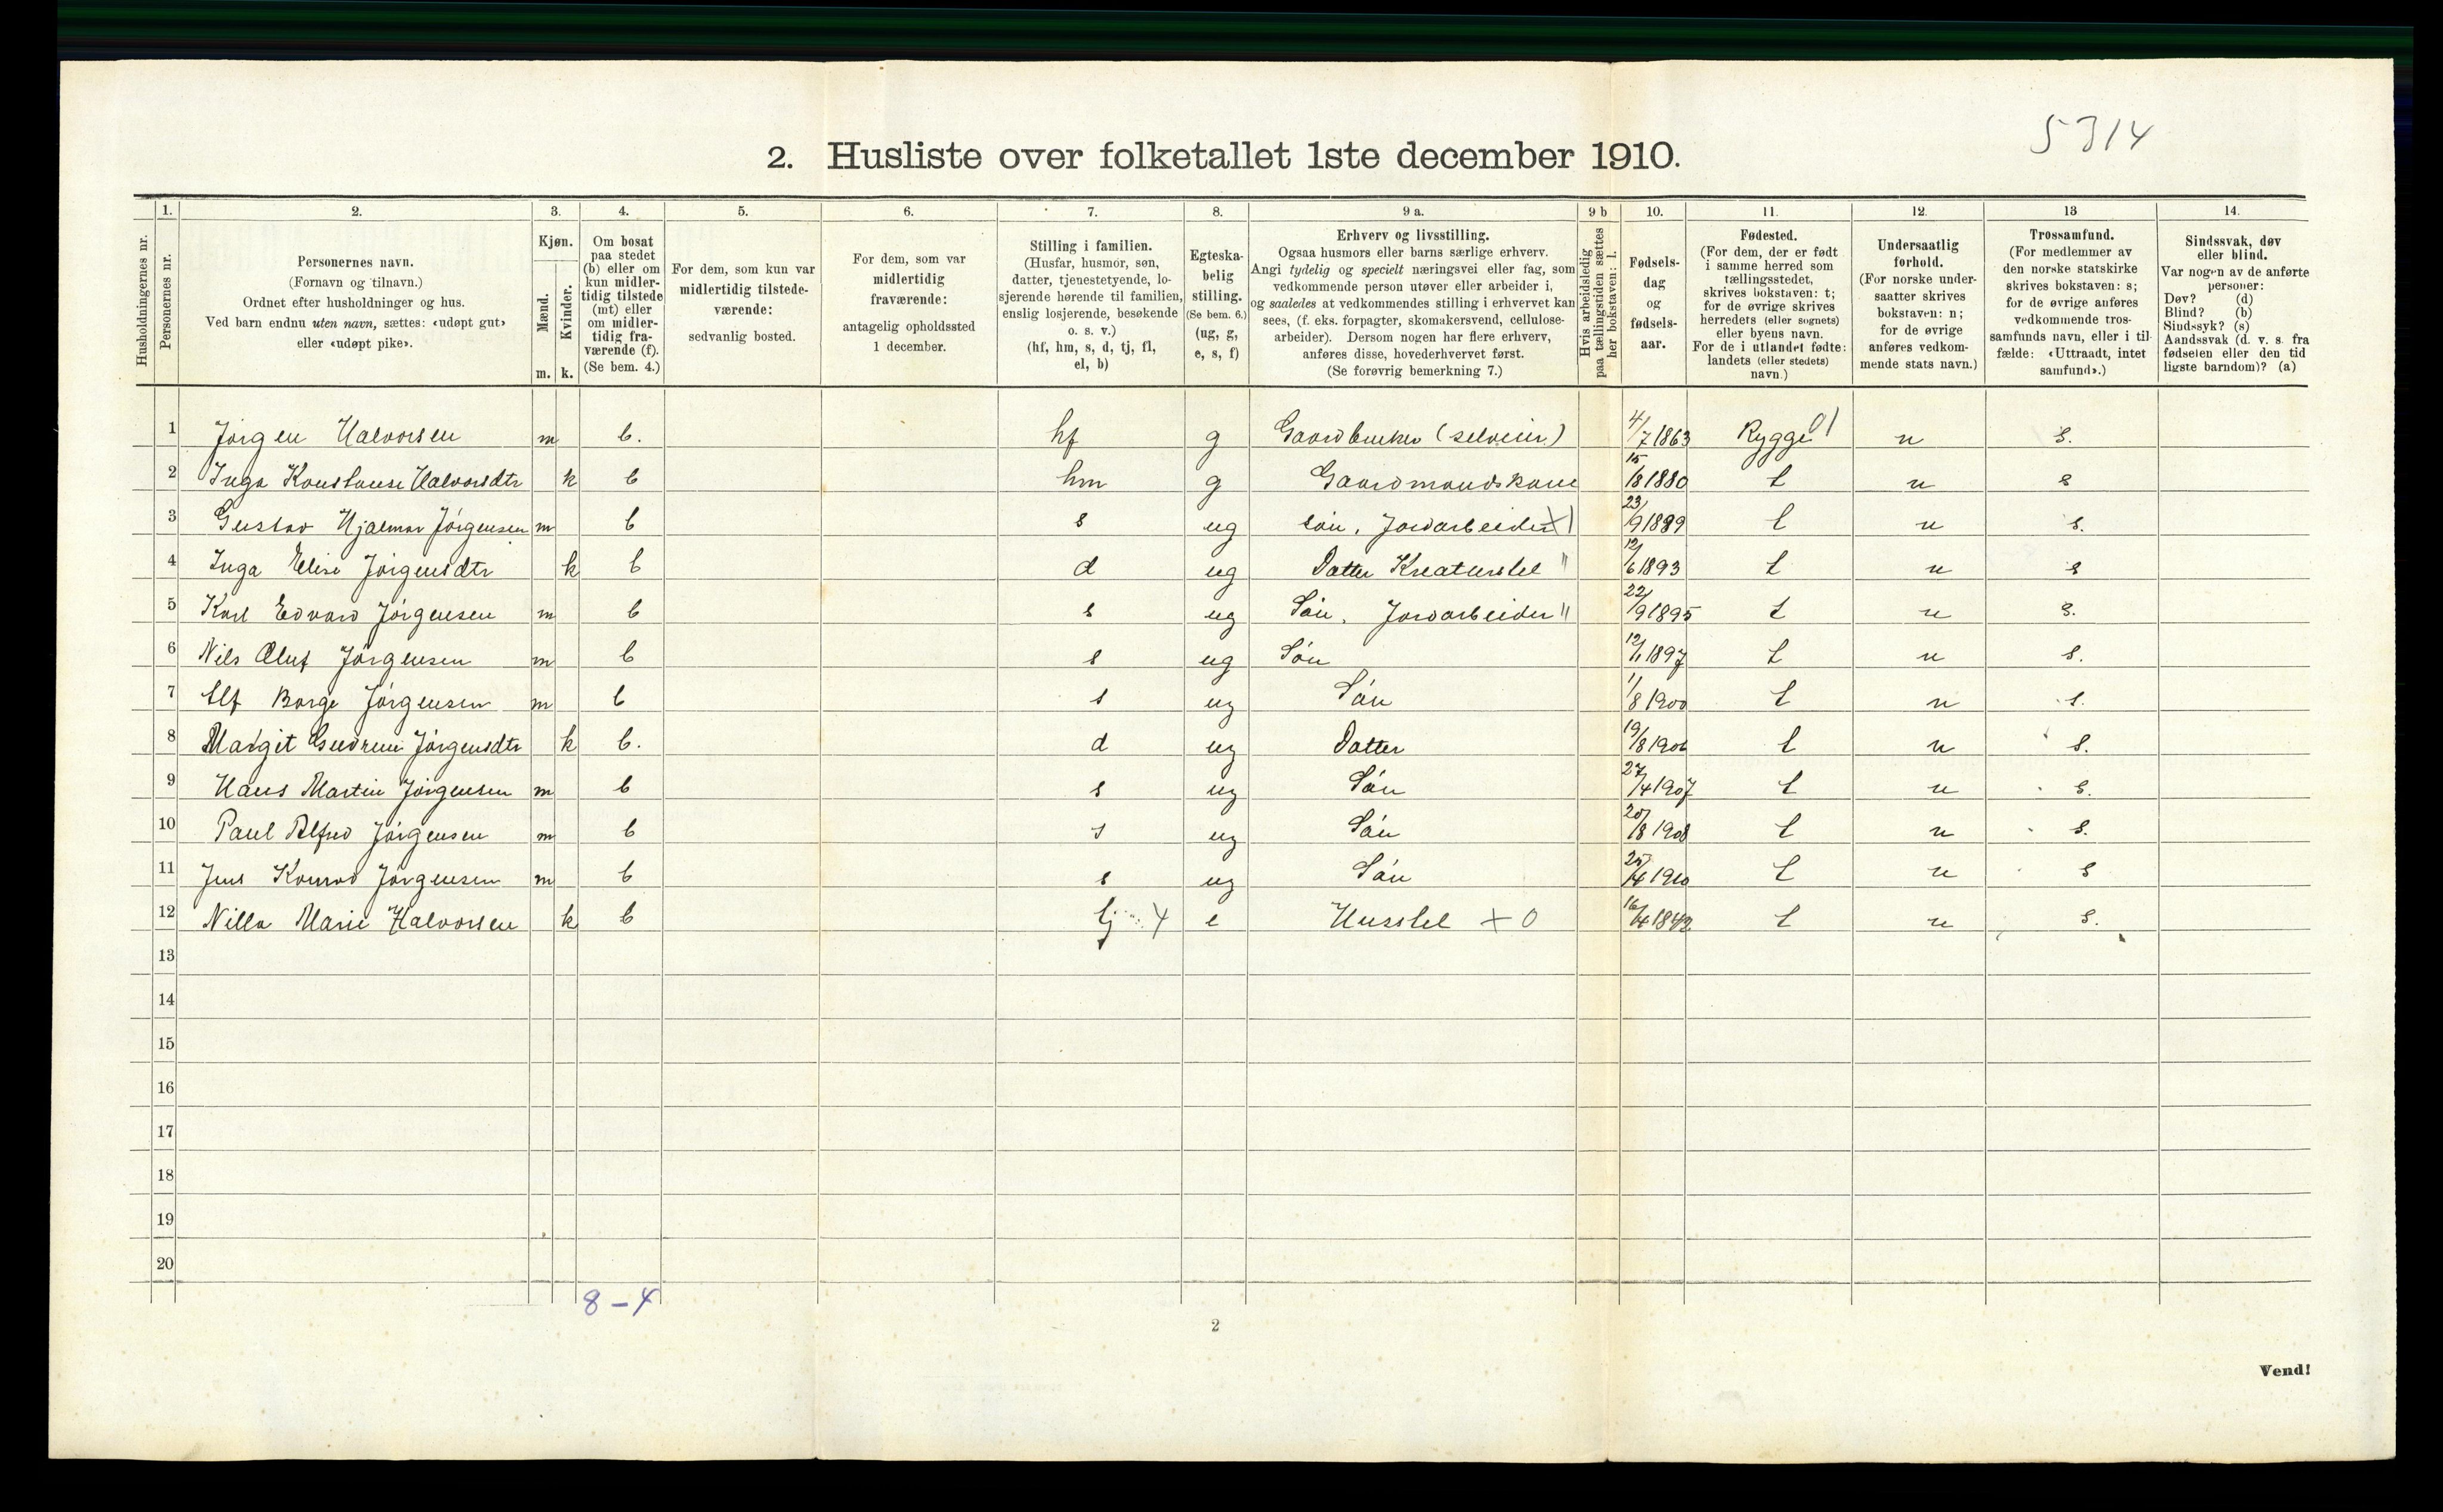 5314
2. Husliste over folketallet 1ste december 1910.
Husholdningernes nr.
1.
Personernes nr.
2.
Personernes navn.
(Fornavn og tilnavn.)
Ordnet efter husholdninger og hus.
Ved barn endnu uten navn, sættes: «udøpt gut»
eller «udøpt pike».
3.
Kjøn.
Mænd.
Kvinder.
m. k.
4.
Om bosat
paa stedet
(b) eller om
kun midler-
tidig tilstede
(mt) eller
om midler-
tidig fra-
værende (f).
(Se bem. 4.)
5.
For dem, som kun var
midlertidig tilstede-
værende:
sedvanlig bosted.
6.
For dem, som var
midlertidig
fraværende:
antagelig opholdssted
1 december.
7.
Stilling i familien.
(Husfar, husmor, søn,
datter, tjenestetyende, lo-
sjerende hørende til familien,
enslig losjerende, besøkende
o. s. v.)
(hf, hm, s, d, tj, fl,
el, b)
8.
Egteska-
belig
stilling.
(Se bem. 6.)
(ug, g,
e, s, f)
9 a.
Erhverv og livsstilling.
Ogsaa husmors eller barns særlige erhverv.
Angi tydelig og specielt næringsvei eller fag, som
vedkommende person utøver eller arbeider i,
og saaledes at vedkommendes stilling i erhvervet kan
sees, (f. eks. forpagter, skomakersvend, cellulose-
arbeider). Dersom nogen har flere erhverv,
anføres disse, hovederhvervet først.
(Se forøvrig bemerkning 7.)
9 b
Hvis arbeidsledig
paa tællingstiden sættes
her bokstaven: l.
10.
Fødsels-
dag
og
fødsels-
aar.
11.
Fødested.
(For dem, der er født
i samme herred som
tællingsstedet,
skrives bokstaven: t;
for de øvrige skrives
herredets (eller sognets)
eller byens navn.
For de i utlandet fødte:
landets (eller stedets)
navn.)
12.
Undersaatlig
forhold.
(For norske under-
saatter skrives
bokstaven: n;
for de øvrige
anføres vedkom-
mende stats navn.)
13
Trossamfund.
(For medlemmer av
den norske statskirke
skrives bokstaven: s;
for de øvrige anføres
vedkommende tros-
samfunds navn, eller i til-
fælde: «Uttraadt, intet
samfund».)
14.
Sindssvak, døv
eller blind.
Var nogen av de anførte
personer:
Døv? (d)
Blind? (b)
Sindssyk? (s)
Aandssvak (d. v. s. fra
fødselen eller den tid-
ligste barndom)? (a)
1 Jörgen Halvorsen m b. hf g Gaardbruker (selveier) 4/7 1863 Rygge 01 n s.
2 Inga Konstanse Halvorsdtr k b hm g Gaardmandskone 15/8 1880 t n s
3 Gustav Hjalmar Jörgensen m b s ug sön, Jordarbeider X1 23/9 1889 t n s.
4 Inga Elise Jörgensdtr k b d ug Datter Kreaturstel " 12/6 1893 t n s
5 Karl Edvard Jörgensen m b s ug Sön, Jordarbeider " 22/9 1895 t n s.
6 Nils Oluf Jörgensen m b s ug Sön 12/1 1897 t n s.
7 Borge Jörgensen m b s ug Sön 1/8 1900 t n s.
8 Margit Gudrun Jörgensdtr k b. d ug Datter 19/8 t n s.
9 Hans Martin Jörgensen m b s ug Sön 27/4 1907 t n s.
10 Paul Alfred Jörgensen m b s ug Sön 20/8 1908 t n s.
11 Jens Konrad Jörgensen m b s ug Sön 25/4 1910 t n s
12 Nilla Marie Halvorsen k b tj 4 e Husstel + 0 16/4 t n s.
13
14
15
16
17
18
19
20
8 - 4
2
Vend!